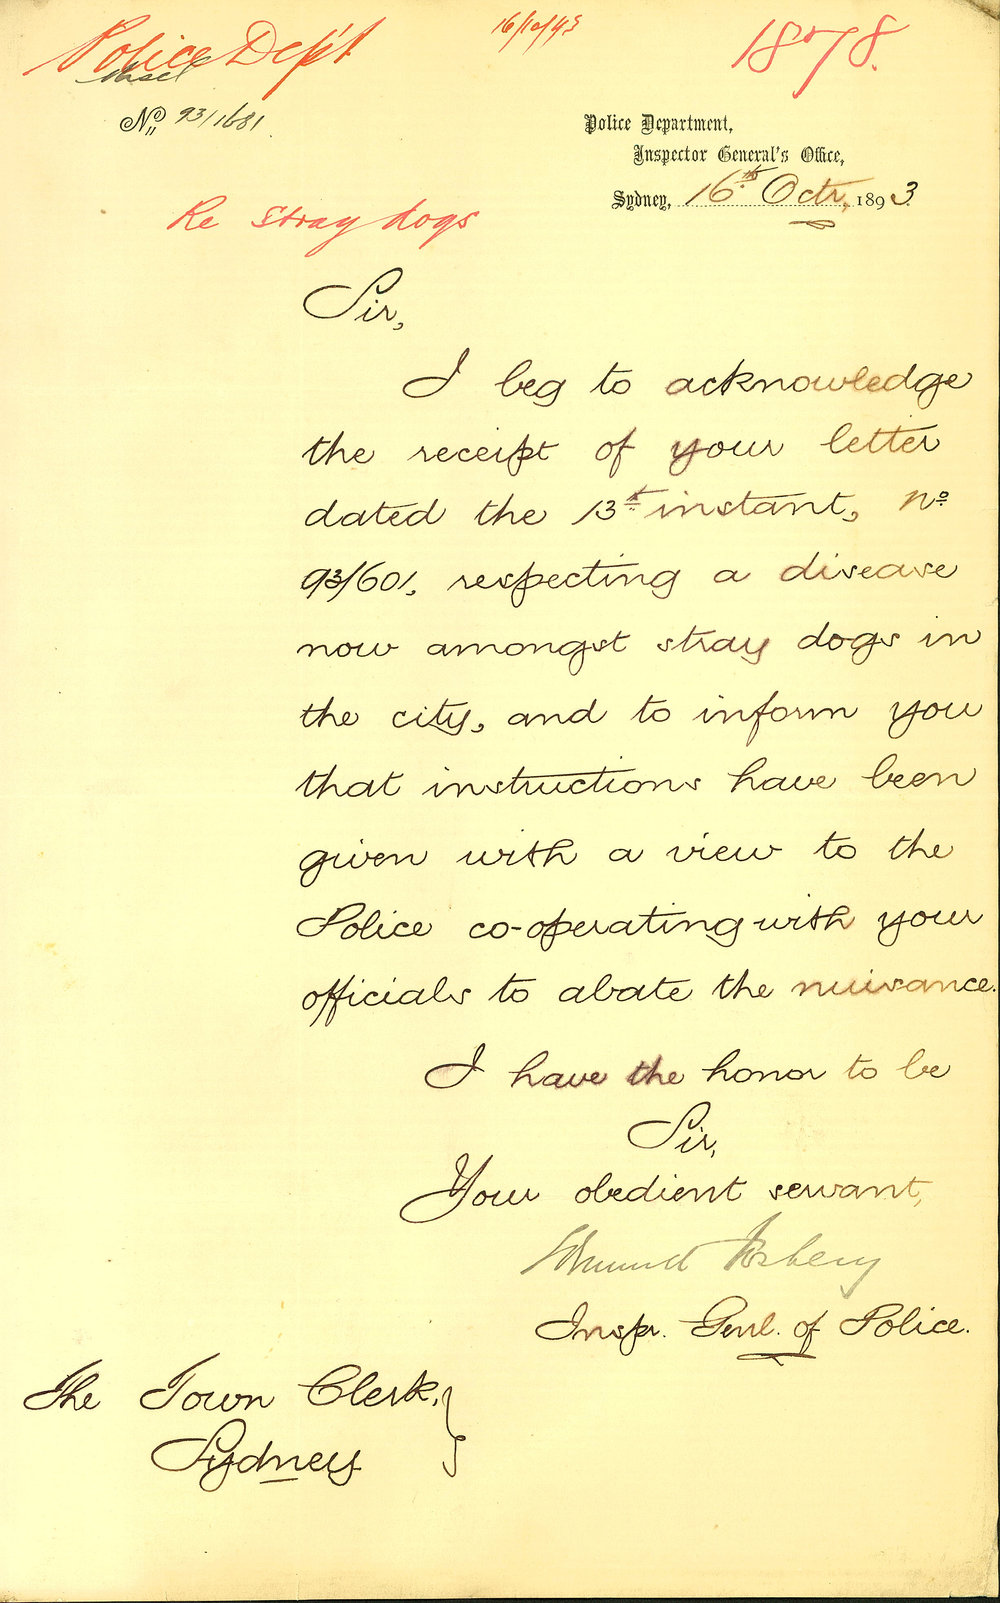 Police Dep't
16/10/93
1878.
Misc
No. 93/1681
Police Department,
Inspector General's Office,
Sydney, 16th Octr, 1893
Re stray dogs
Sir,
I beg to acknowledge
the receipt of your letter
dated the 13th instant, No
93/601, respecting a disease
now amongst stray dogs in
the city, and to inform you
that instructions have been
given with a view to the
Police co-operating with your
officials to abate the nuisance.
I have the honor to be
Sir,
Your obedient servant,
Edmund Fosbery
Inspr. Genl. of Police.
The Town Clerk,
Sydney